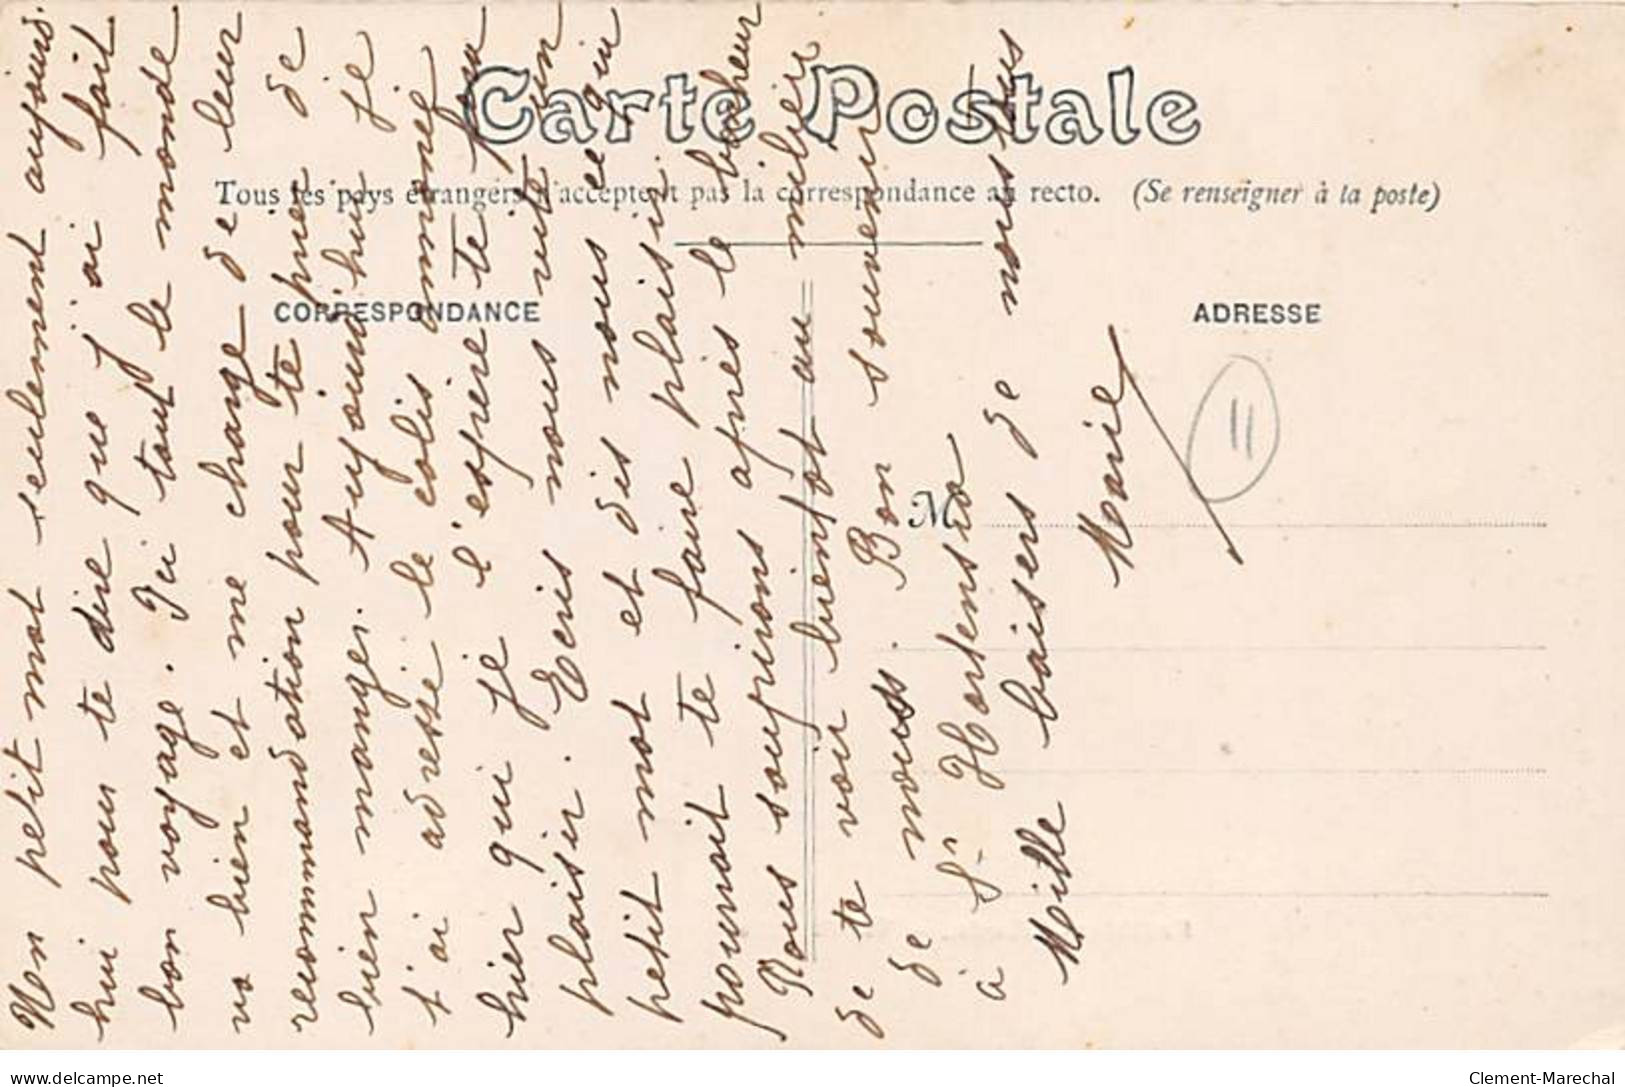 Carte Postale
Tous les pays étrangers n'acceptent pas la correspondance au recto. (Se renseigner à la poste)
CORRESPONDANCE
ADRESSE
M
11
Mon petit mot seulement aujourd.
hui pour te dire que j'ai fait
bon voyage. Ici tout le monde
va bien et me charge de leur
recommandation pour te prier de
bien manger. Aujourd'hui je
t'ai adressé le colis annoncé
hier qui je l'espère te fera
plaisir. Ecris nous vite un
petit mot et dis nous ce qui
pourrait te faire plaisir.
Nous soupirons après le bonheur
de te voir bientôt au milieu
de nous. Bon souvenir
à Sr Hortensia
Mille baisers de nous tous
Marie
delcampe.net
Clement-Marechal